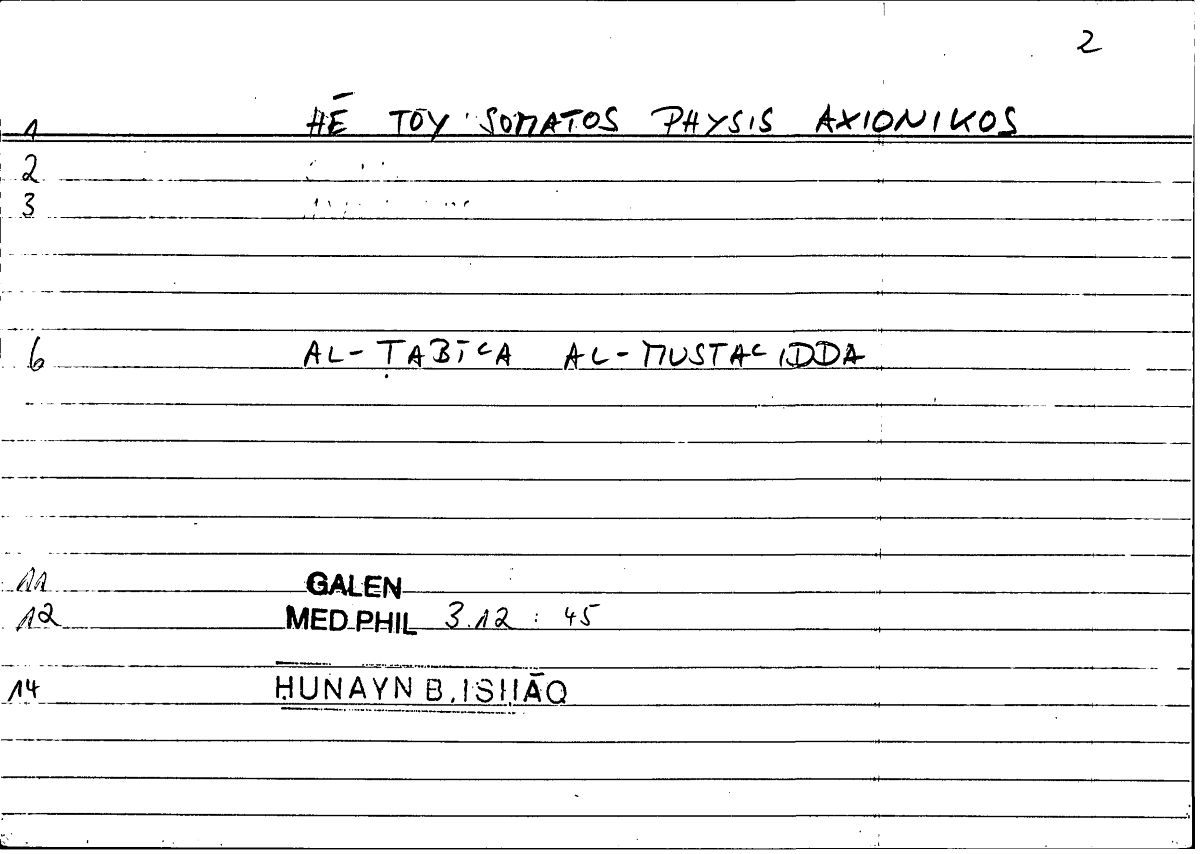 2
1 HĒ TOY SOMATOS PHYSIS AXIONIKOS
2
3
6 AL-ṬABĪcA AL-MUSTAcIDDA
11 GALEN
12 MED PHIL 3.12 : 45
14 ḤUNAYN B. ISḤĀQ